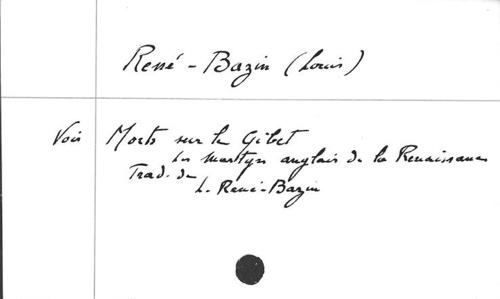 René-Bazin (Louis)
Voir Morts sur le Gibet
Les martyrs anglais de la Renaissance
Trad. de
L. René-Bazin